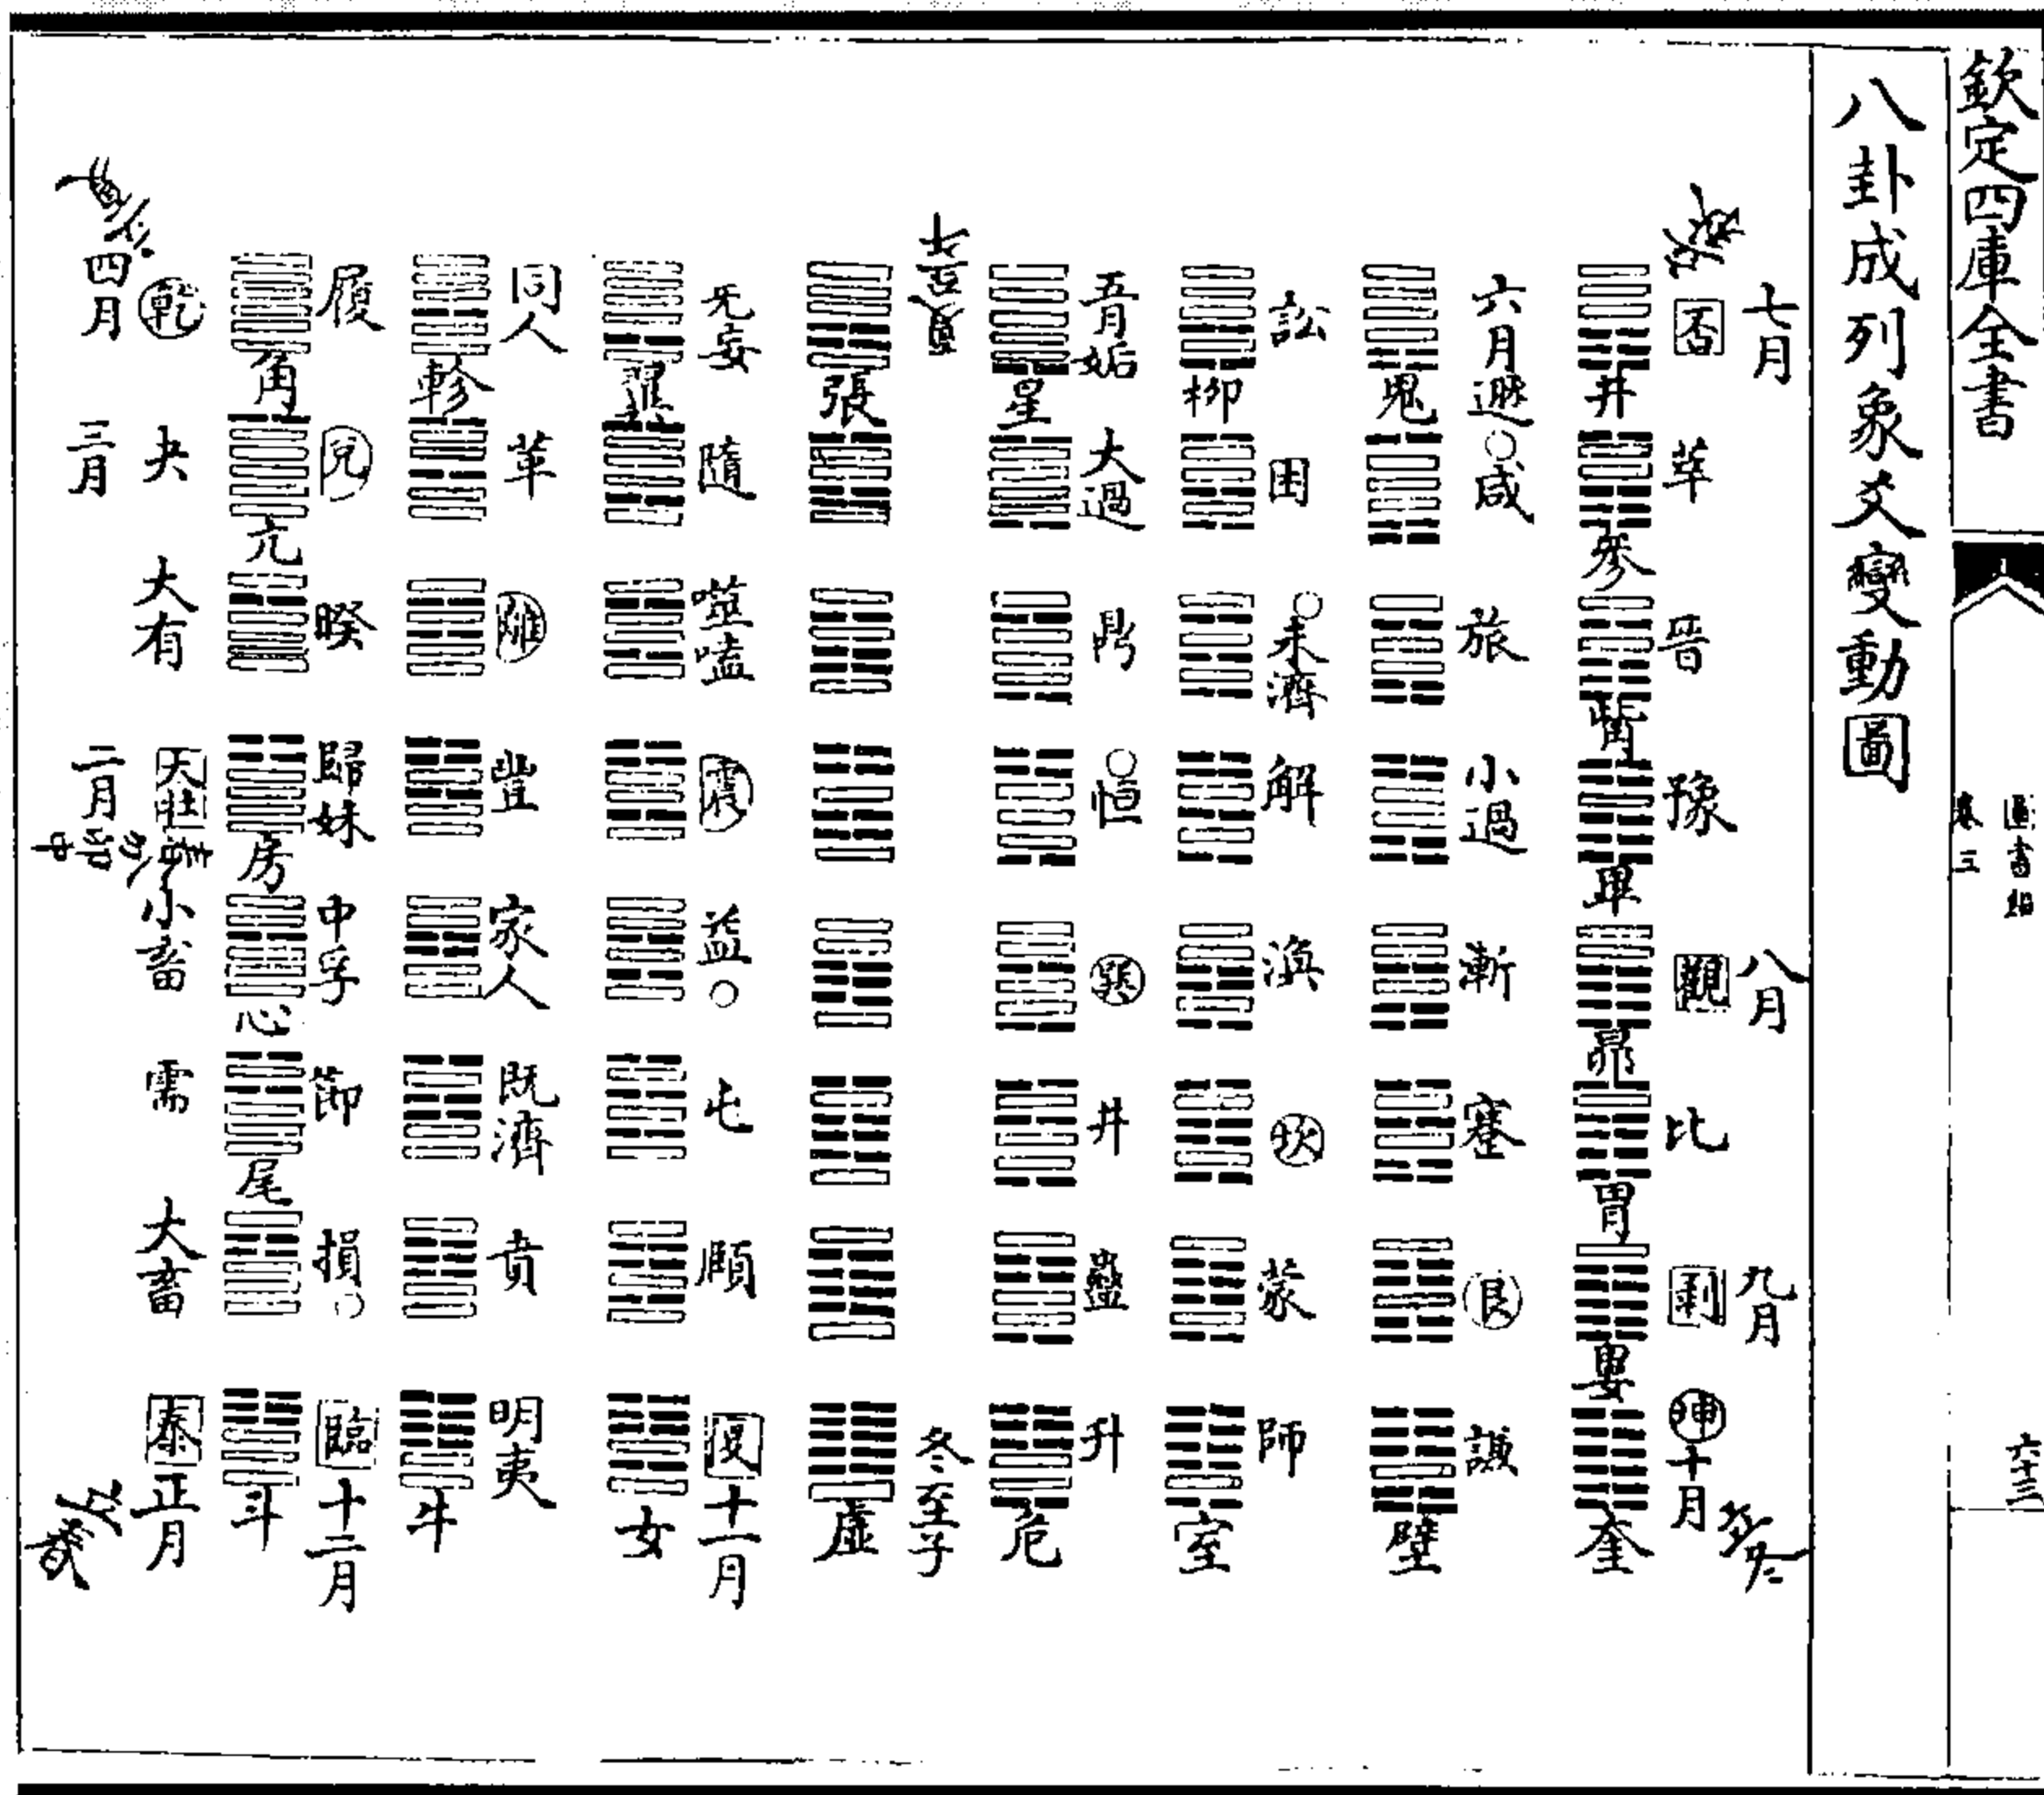 欽定四庫全書
圖書編
卷三
六十三
八卦成列象爻變動圖
七月
八月
九月
否
萃
晉
豫
觀
比
剥
坤十月
井
參
觜
畢
昴
胃
婁
奎
六月遯
咸
旅
小過
漸
蹇
艮
謙
鬼
壁
訟
困
未濟
解
渙
坎
蒙
師
柳
室
五月姤
大過
鼎
恒
巽
井
蠱
升
星
危
冬至子
張
虛
无妄
隨
噬嗑
震
益
屯
頤
復十一月
翼
女
同人
革
離
豐
家人
既濟
賁
明夷
軫
牛
履
兌
睽
歸妹
中孚
節
損
臨十二月
角
亢
房
心
尾
斗
乾
夬
大有
大壯
小畜
需
大畜
泰正月
四月
三月
二月